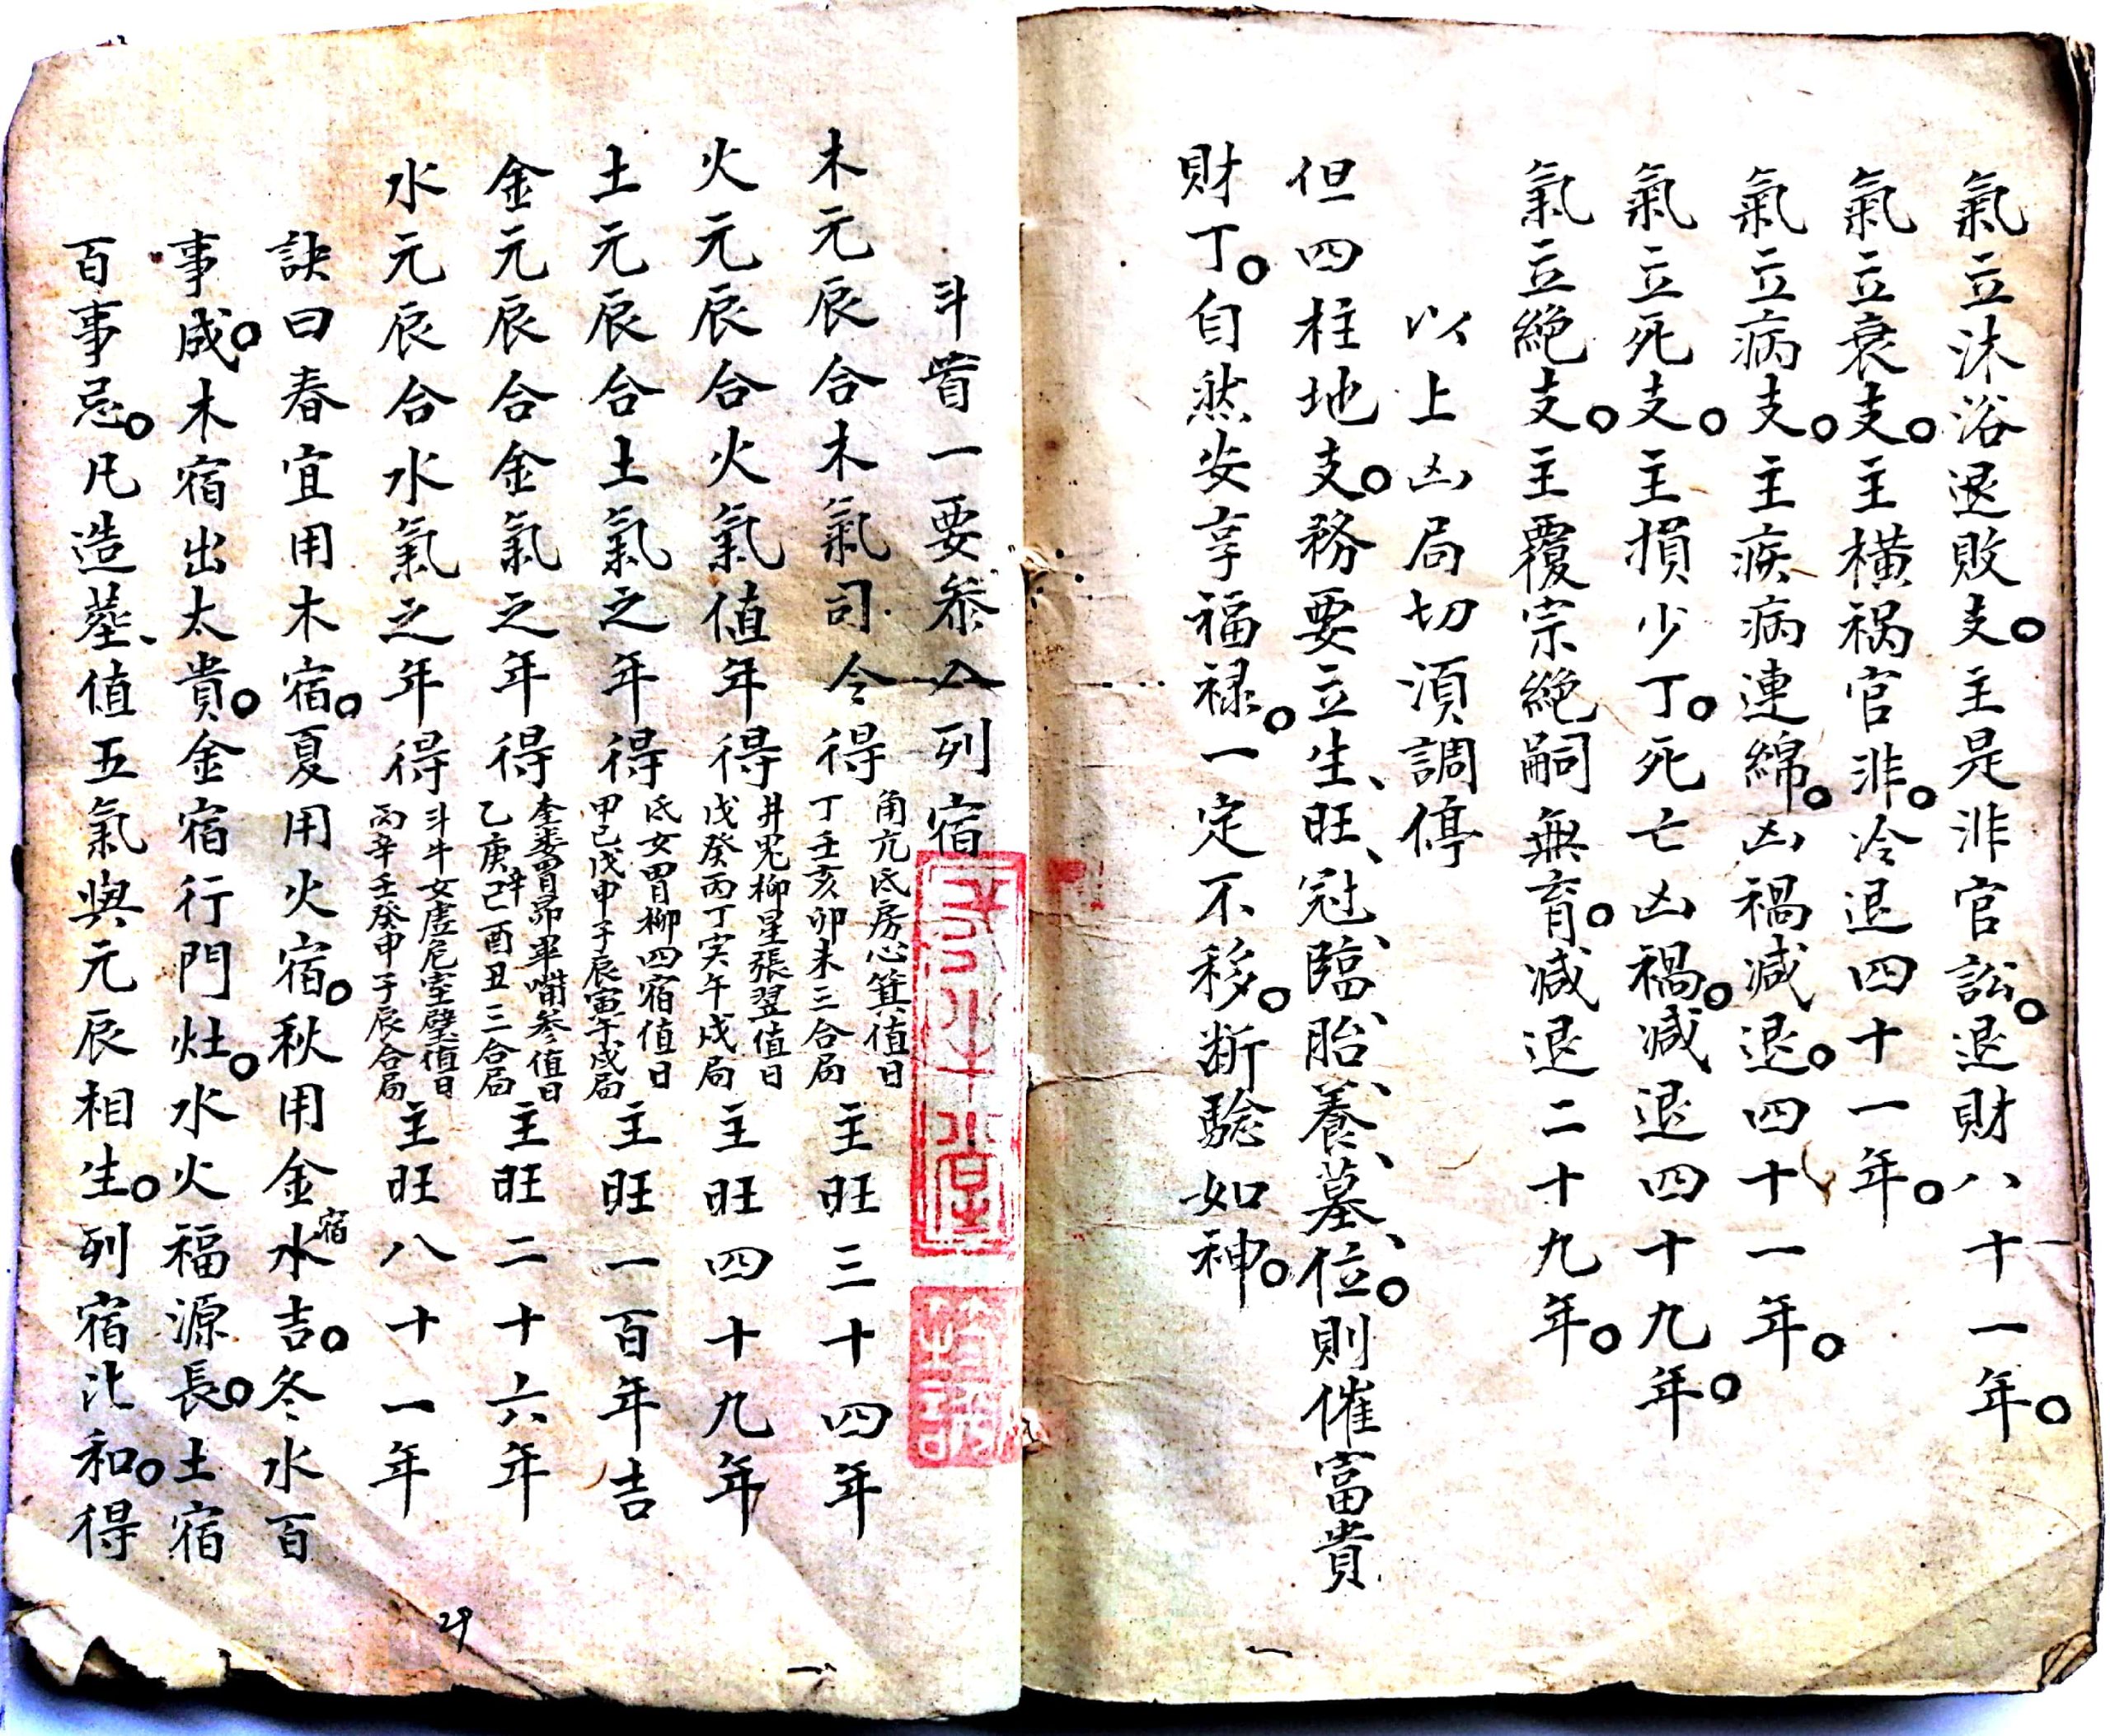 氣立沐浴退敗支。主是非官訟。退財八十一年。
氣立衰支。主橫禍官非。冷退四十一年。
氣立病支。主疾病連綿。凶禍減退。四十一年。
氣立死支。主損少丁。死亡凶禍。減退四十九年。
氣立絕支。主覆宗絕嗣無育。減退二十九年。
以上凶局切須調停
但四柱地支。務要立生、旺、冠、臨、胎、養、墓、位。則催富貴
財丁。自然安享福祿。一定不移。斷驗如神。
斗首一要參入列宿
木元辰合木氣司令得角亢氐房心箕值日丁壬亥卯未三合局主旺三十四年
火元辰合火氣值年得井鬼柳星張翌值日戊癸丙丁寅午戍局主旺四十九年
土元辰合土氣之年得氐女胃柳四宿值日甲己戊申子辰寅午戍局主旺一百年吉
金元辰合金氣之年得奎婁胃昴畢嘴參值日乙庚辛己酉丑三合局主旺二十六年
水元辰合水氣之年得斗牛女虛危室壁值日丙辛壬癸申子辰合局主旺八十一年
訣曰春宜用木宿。夏用火宿。秋用金水宿吉。冬水百
事成。木宿出太貴。金宿行門灶。水火福源長。土宿
百事忌。凡造塟、值五氣與元辰相生。列宿比和。得
29